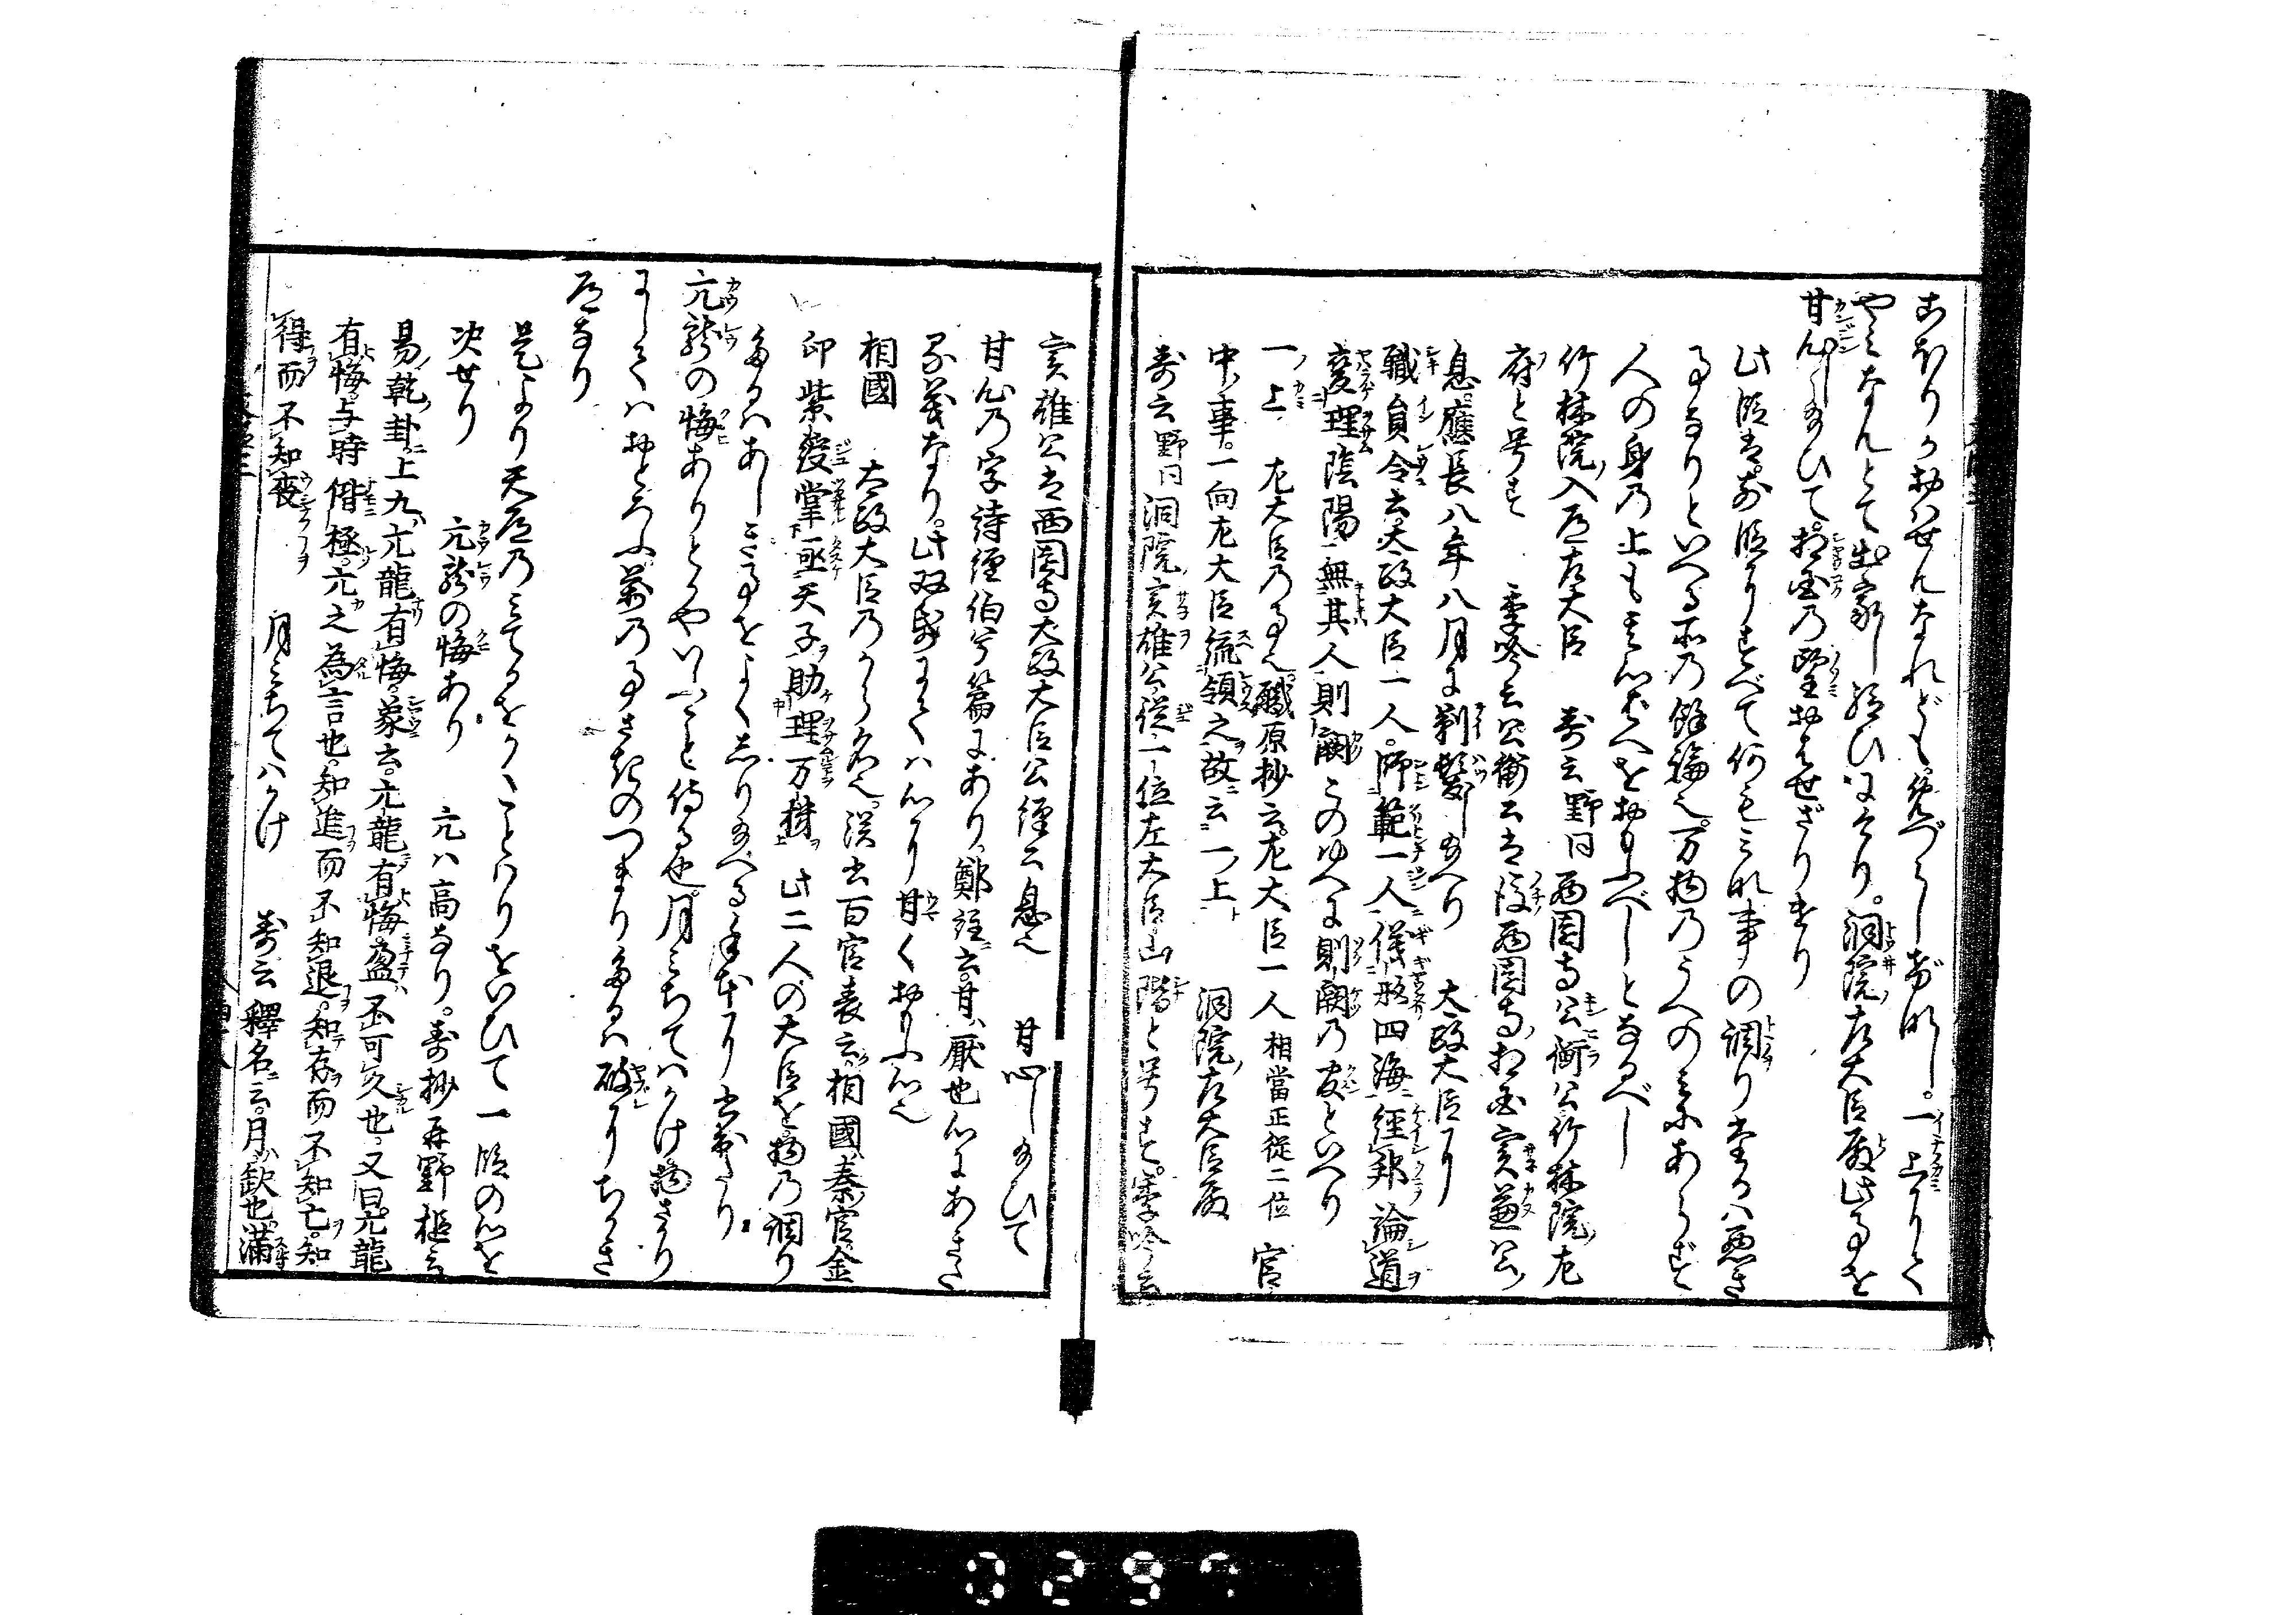 とゞこほりかおはせんなれどもめづらしげなし。一上にて
やみなんとて出家し給ひにけり。洞院左大臣殿此事を
甘心し給ひて。相国の望おはせざりけり
此段は前段にすべて何もみな事の調りたるは悪き
事なりといへる所の餘論也。万物のうへのみにあらず
人の身の上も其心ばへをおもふべしとなるべし
竹林院入道左大臣　寿云野曰西園寺公衡公竹林院左
府と号す　季吟云公衡公は後西園寺相国実兼公
息。應長八年八月に剃髪し給へり　太政大臣に
職員令云太政大臣一人。師範一人儀形四海経邦論道
燮理陰陽無其人則闕このゆへに則闕の官といへり
一ノ上　左大臣の事也。職原抄云左大臣一人相當正従二位　官
中ノ事。一向左大臣統領之故云一ノ上ト
寿云野曰洞院実雄公従一位左大臣山階と号す。季吟云
実雄公は西園寺太政大臣公経公息也　甘心し給ひて
甘心の字詩経伯兮篇にあり。鄭註云甘ハ厭也心にあきたる
義なり。此双帋にては心に甘くおもふ心也
相國　太政大臣のから名也。漢書百官表云相國秦官金
印紫綬掌丞天子助理万機　此二人の大臣を物の調り
たるはあしき事をよくしり給へる手本に出せり
亢龍の悔ありとかやいふこと侍る也。月みちてはかけ物さかり
にしてはおとろふ。萬の事さきのつまりたるは破にちかき
道なり
是より天道のみてるをかくことはりをいひて一段の心を
決せり　亢龍の悔あり　亢ハ高なり。寿抄再野槌云
易乾卦上九亢龍有悔。象云亢龍有悔盈不可久也。又曰亢龍
有悔与時偕極。亢之為言也知進而不知退。知存而不知亡。知
得而不知喪　月みちてハかけ　寿云釋名云月ハ缺也満